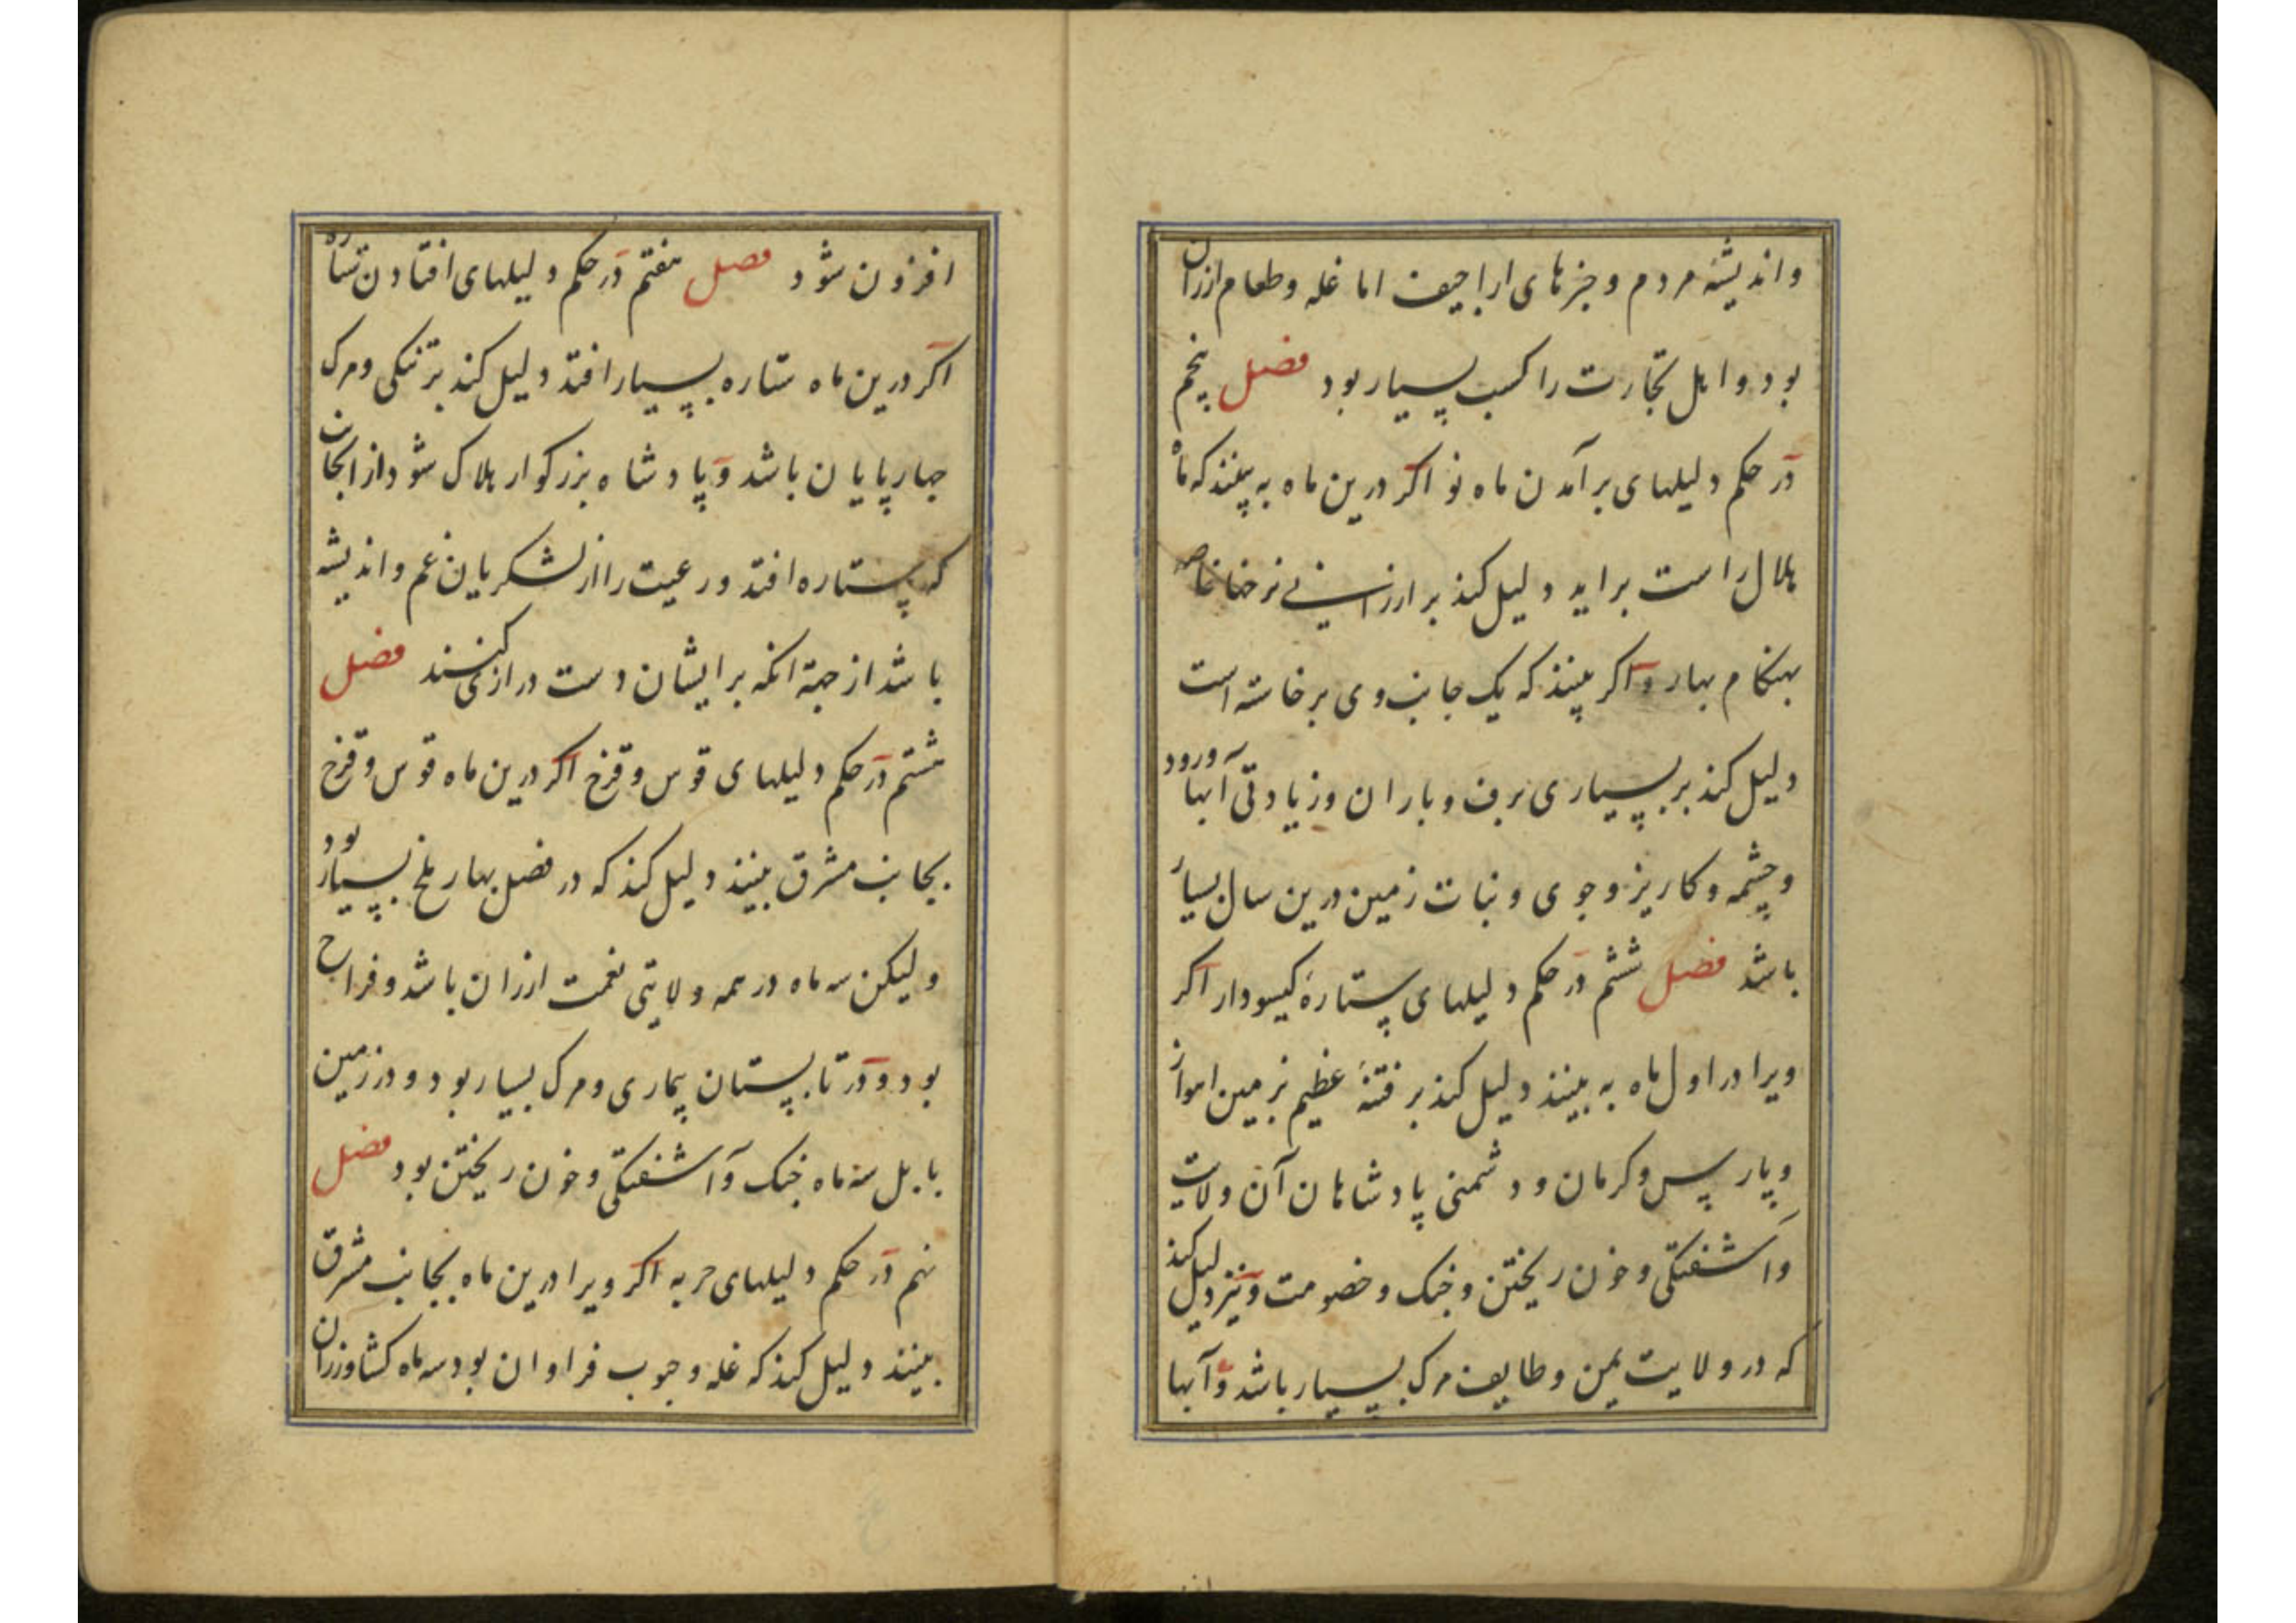 واندیشهٔ مردم و خبرهای اراجیف اما غله وطعام ارزان
بود و اهل تجارت را کسب بسیار بود فصل پنجم
در حکم دلیلهای برآمدن ماه نو اکر درین ماه به بینند که ماه
هلال راست براید دلیل کند بر ارزانی نرخها خاصه
بهنکام بهار واکر بینند که یک جانب وی برخاسته است
دلیل کند بر بسیاری برف و باران وزیادتی آبها ورود
وچشمه وکاریز وجوی ونبات زمین درین سال بسیار
باشد فصل ششم در حکم دلیلهای ستارهٔ کیسودار اکر
ویرا در اول ماه به بینند دلیل کند بر فتنهٔ عظیم بزمین اهواز
وپارس وکرمان ودشمنی پادشاهان آن ولایت
وآشفتکی وخون ریختن وجنک وخصومت ونیز دلیل کند
که در ولایت یمن وطایف مرک بسیار باشد وآبها
افزون شود فصل هفتم در حکم دلیلهای افتادن ستاره
اکر درین ماه ستاره بسیار افتد دلیل کند بر تنکی ومرک
چهارپایان باشد وپادشاه بزرکوار هلاک شود از انجانب
که ستاره افتد ورعیت را از لشکریان غم واندیشه
باشد از جهة انکه برایشان دست درازی کنند فصل
هشتم در حکم دلیلهای قوس وقزح اکر درین ماه قوس وقزح
بجانب مشرق بینند دلیل کند که در فصل بهار ملخ بسیار بود
ولیکن سه ماه در همه ولایتی نعمت ارزان باشد وفراخ
بود ودر تابستان بیماری ومرک بسیار بود ودر زمین
بابل سه ماه جنک وآشفتکی وخون ریختن بود فصل
نهم در حکم دلیلهای حربه اکر ویرا درین ماه بجانب مشرق
بینند دلیل کند که غله وحبوب فراوان بود سه ماه کشاورزان